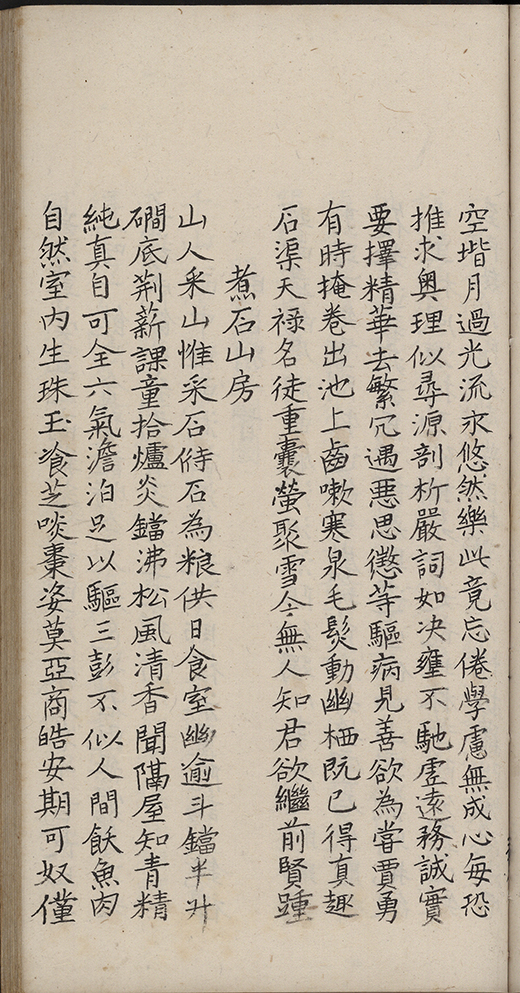 空堦月過光流水悠然樂此竟忘倦學慮無成心每恐
推求奥理似尋源剖析嚴詞如决壅不馳虛遠務誠實
要擇精華去繁冗遇惡思懲等驅病見善欲為嘗賈勇
有時掩卷出池上齒嗽寒泉毛髮動幽栖既已得真趣
石渠天禄名徒重囊螢聚雪今無人知君欲繼前賢踵
煮石山房
山人采山惟采石偫石為粮供日食室幽逾斗鐺半升
磵底荆薪課童拾爐炎鐺沸松風清香聞隔屋知青精
純真自可全六氣澹泊足以驅三彭不似人間飫魚肉
自然室内生珠玉飡芝啖棗姿莫亞商皓安期可奴僮